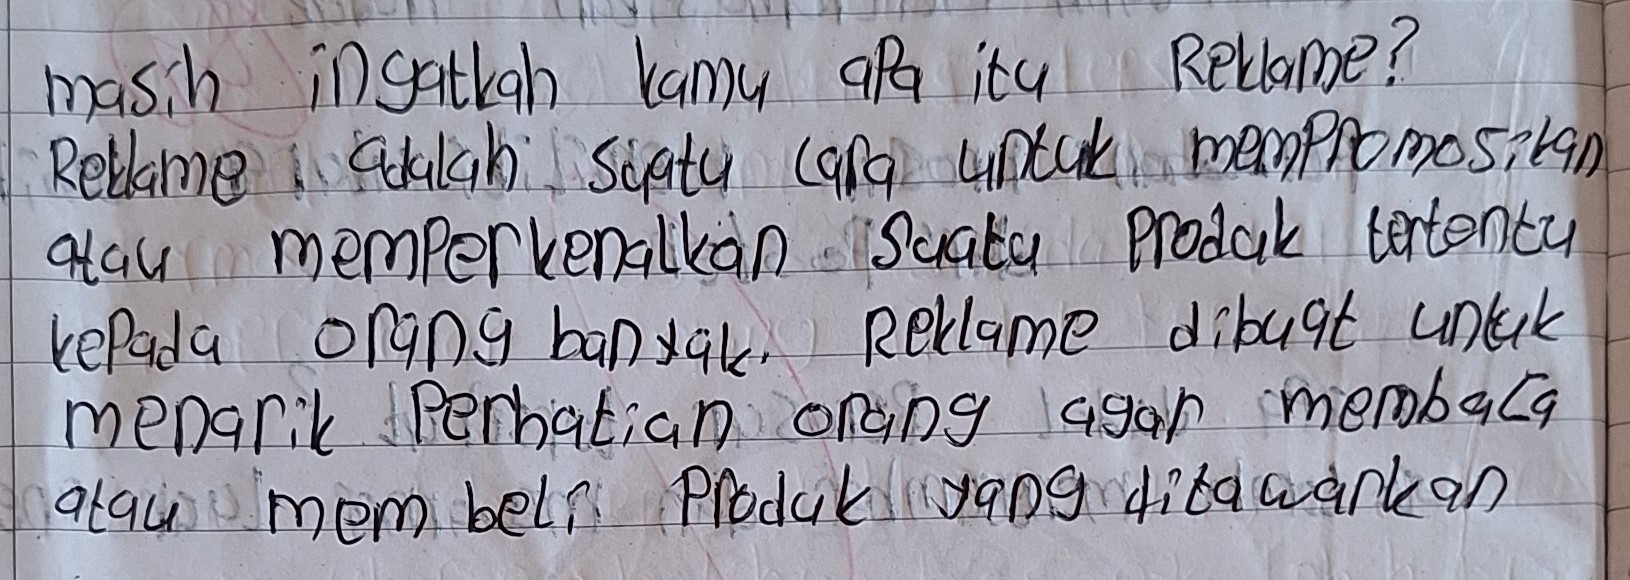 masih ingatkah kamu apa itu Reklame?
Reklame adalah suatu cara untuk mempromosikan
atau memperkenalkan suatu Produk tertentu
kepada orang banyak. Reklame dibuat untuk
menarik Perhatian orang agar membaca
atau mem beli Produk yang ditawarkan